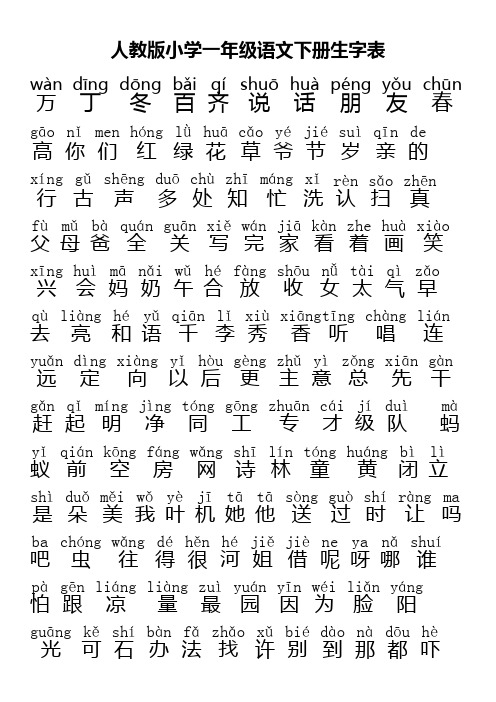 人教版小学一年级语文下册生字表
wàn dīng dōng bǎi qí shuō huà péng yǒu chūn
万 丁 冬 百 齐 说 话 朋 友 春
gāo nǐ men hóng lǜ huā cǎo yé jié suì qīn de
高 你 们 红 绿 花 草 爷 节 岁 亲 的
xíng gǔ shēng duō chù zhī máng xǐ rèn sǎo zhēn
行 古 声 多 处 知 忙 洗 认 扫 真
fù mǔ bà quán guān xiě wán jiā kàn zhe huà xiào
父 母 爸 全 关 写 完 家 看 着 画 笑
xīng huì mā nǎi wǔ hé fàng shōu nǚ tài qì zǎo
兴 会 妈 奶 午 合 放 收 女 太 气 早
qù liàng hé yǔ qiān lǐ xiù xiāngtīng chàng lián
去 亮 和 语 千 李 秀 香 听 唱 连
yuǎn dìng xiàng yǐ hòu gèng zhǔ yì zǒng xiān gàn
远 定 向 以 后 更 主 意 总 先 干
gǎn qǐ míng jìng tóng gōng zhuān cái jí duì mà
赶 起 明 净 同 工 专 才 级 队 蚂
yǐ qián kōng fáng wǎng shī lín tóng huáng bì lì
蚁 前 空 房 网 诗 林 童 黄 闭 立
shì duǒ měi wǒ yè jī tā tā sòng guò shí ràng ma
是 朵 美 我 叶 机 她 他 送 过 时 让 吗
ba chóng wǎng dé hěn hé jiě jiè ne ya nǎ shuí
吧 虫 往 得 很 河 姐 借 呢 呀 哪 谁
pà gēn liáng liàng zuì yuán yīn wéi liǎn yáng
怕 跟 凉 量 最 园 因 为 脸 阳
guāng kě shí bàn fǎ zhǎo xǔ bié dào nà dōu hè
光 可 石 办 法 找 许 别 到 那 都 吓